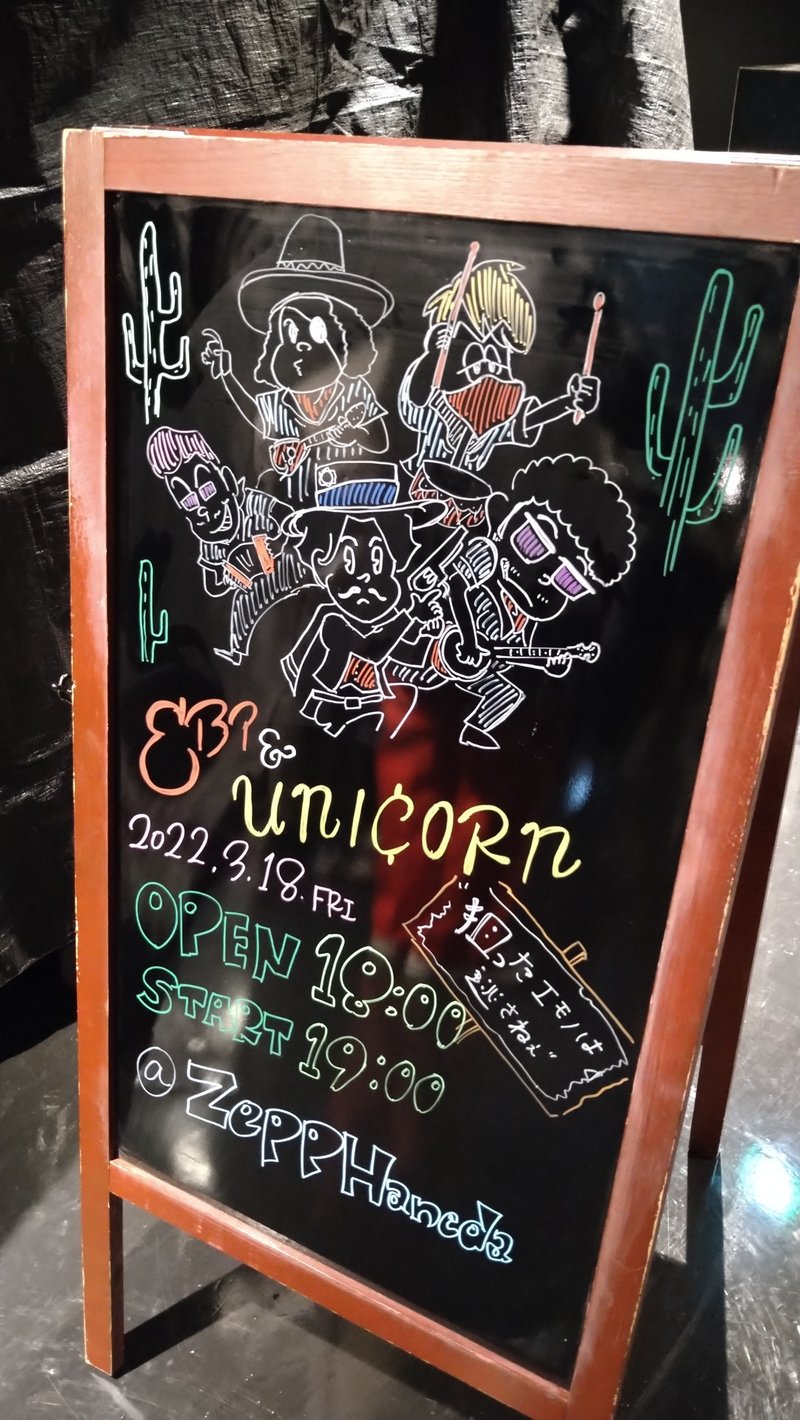 EBI &
UNICORN
2022.3.18.FRI
OPEN 18:00
START 19:00
"狙ったエモノは
逃さねぇ"
@ ZeppHaneda